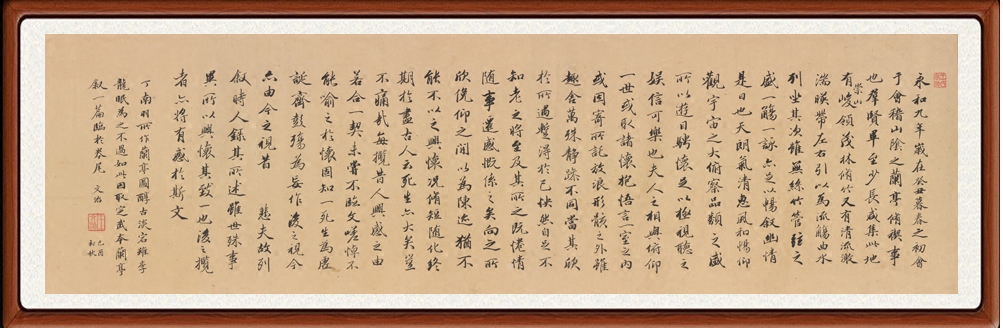 永和九年歲在癸丑暮春之初會
于會稽山陰之蘭亭脩禊事
也羣賢畢至少長咸集此地
有崇山峻領茂林脩竹又有清流激
湍暎帶左右引以為流觴曲水
列坐其次雖無絲竹管絃之
盛一觴一詠亦足以暢敘幽情
是日也天朗氣清惠風和暢仰
觀宇宙之大俯察品類之盛
所以遊目騁懷足以極視聽之
娛信可樂也夫人之相與俯仰
一世或取諸懷抱悟言一室之內
或因寄所託放浪形骸之外雖
趣舍萬殊靜躁不同當其欣
於所遇蹔得於己快然自足不
知老之將至及其所之既惓情
隨事遷感慨係之矣向之所
欣俛仰之間以為陳迹猶不
能不以之興懷況脩短隨化終
期於盡古人云死生亦大矣豈
不痛哉每攬昔人興感之由
若合一契未嘗不臨文嗟悼不
能喻之於懷固知一死生為虛
誕齊彭殤為妄作後之視今
亦由今之視昔 悲夫故列
敘時人錄其所述雖世殊事
異所以興懷其致一也後之攬
者亦將有感於斯文
丁南羽所作蘭亭圖醇古淡宕雖李
龍眠為之不過如此因取定武本蘭亭
敘一篇臨於卷尾 文治
初秋